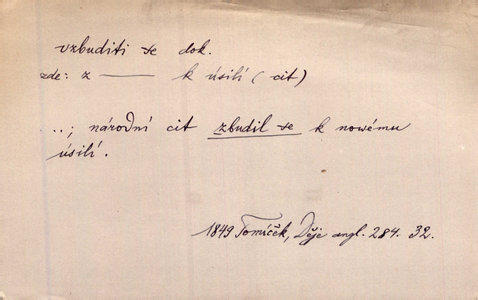 vzbuditi se dok.
zde: z —— k úsilí (cit)
..; národní cit zbudil se k novému
úsilí.
1849 Tomíček, Děje angl. 284. 32.